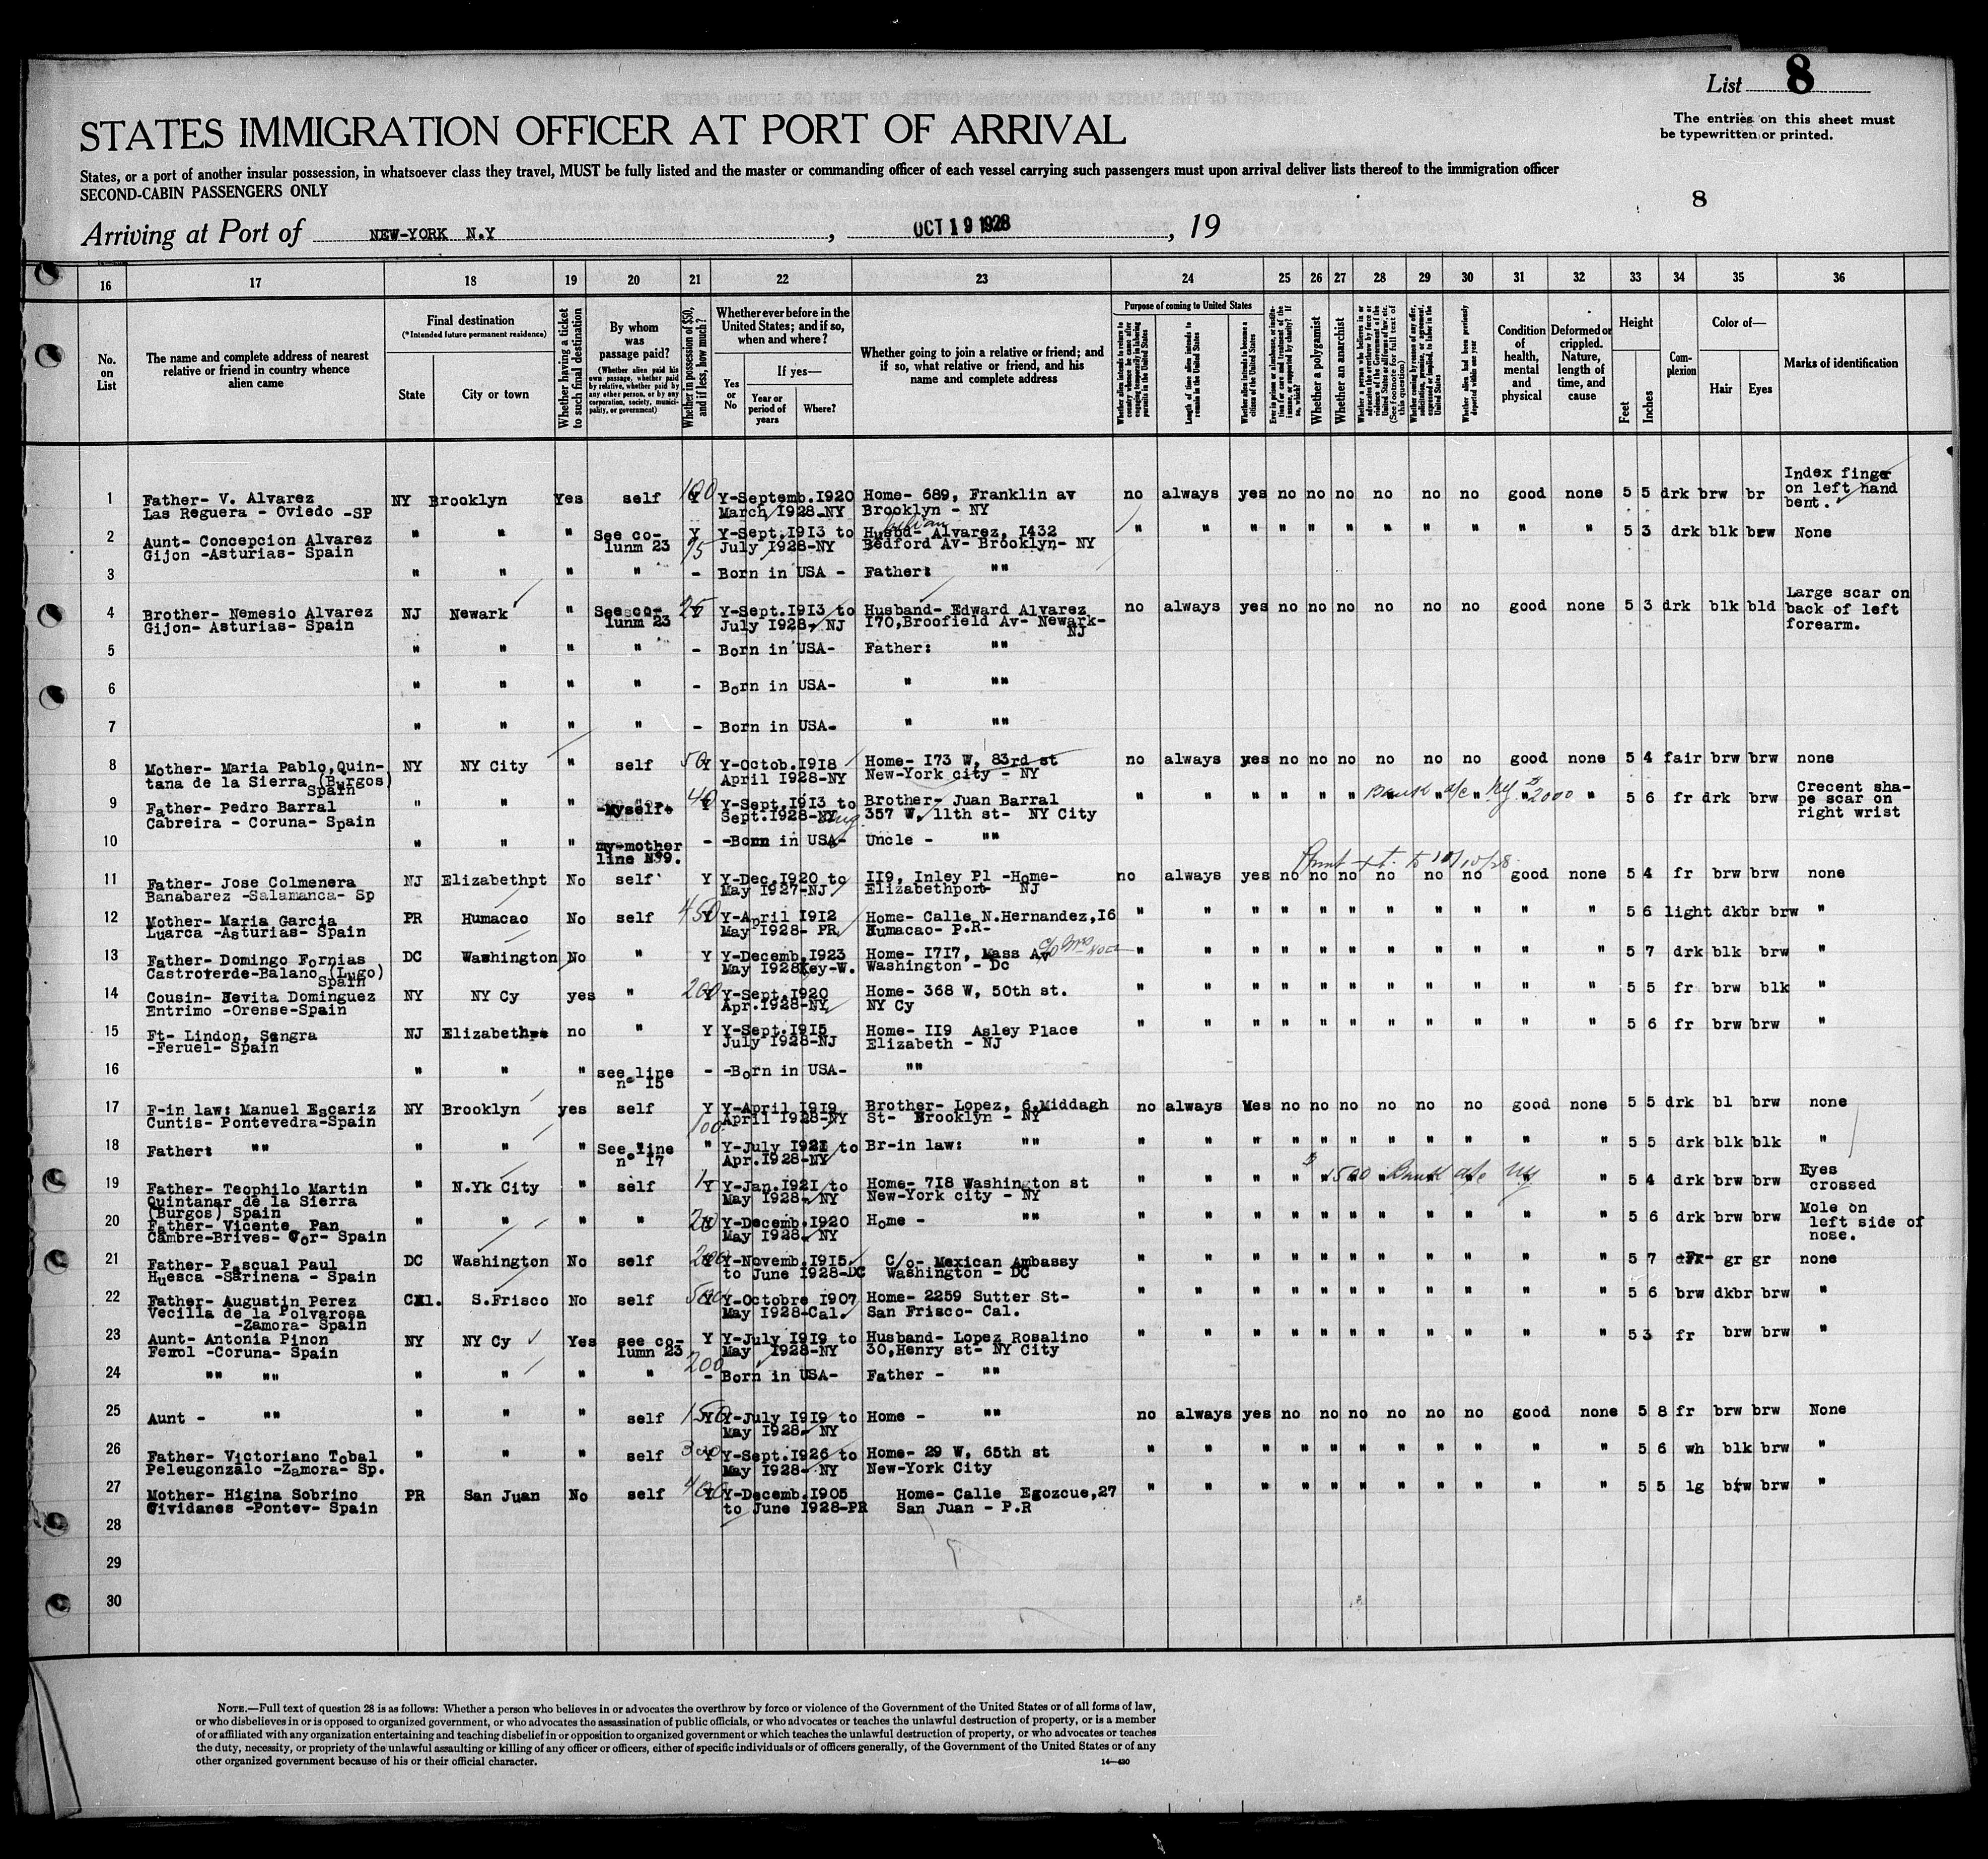 List 8
STATES IMMIGRATION OFFICER AT PORT OF ARRIVAL
The entries on this sheet must
be typewritten or printed.
States, or a port of another insular possession, in whatsoever class they travel, MUST be fully listed and the master or commanding officer of each vessel carrying such passengers must upon arrival deliver lists thereof to the immigration officer
SECOND-CABIN PASSENGERS ONLY
8
Arriving at Port of NEW-YORK N.Y , OCT 19 1928 , 19
16 17 18 19 20 21 22 23 24 25 26 27 28 29 30 31 32 33 34 35 36
No. on List
The name and complete address of nearest relative or friend in country whence alien came
Final destination
(*Intended future permanent residence)
State
City or town
Whether having a ticket to such final destination
By whom was passage paid?
(Whether alien paid his own passage, whether paid by relative, whether paid by any other person, or by any corporation, society, municipality, or government)
Whether in possession of $50, and if less, how much?
Whether ever before in the United States; and if so, when and where?
Yes or No
If yes—
Year or period of years
Where?
Whether going to join a relative or friend; and if so, what relative or friend, and his name and complete address
Purpose of coming to United States
Length of time alien intends to remain in the United States
Whether alien intends to become a citizen of the United States
Whether a polygamist
Whether an anarchist
Whether alien had been previously deported within one year
Condition of health, mental and physical
Deformed or crippled. Nature, length of time, and cause
Height
Feet
Inches
Complexion
Color of—
Hair
Eyes
Marks of identification
1 Father- V. Alvarez NY Brooklyn Yes self 100 Y Y-Septemb.I920 Home- 689, Franklin av no always yes no no no no no no good none 5 5 drk brw br Index finger
Las Reguera - Oviedo -SP March I928-NY Brooklyn - NY on left hand
bent.
2 Aunt- Concepcion Alvarez " " " See co- Y Y-Sept.I9I3 to Husbd- Alvarez, I432 " " " " " " " " " " " 5 3 drk blk brw None
Gijon -Asturias- Spain lunm 23 75 July I928-NY Bedford Av- Brooklyn- NY
3 " " " " - Born in USA - Father: ""
4 Brother- Nemesio Alvarez NJ Newark " See co- 25 Y-Sept.I9I3 to Husband- Edward Alvarez no always yes no no no no no no good none 5 3 drk blk bld Large scar on
Gijon- Asturias- Spain lunm 23 July I928- NJ I70,Broofield Av- Newark- back of left
NJ forearm.
5 " " " " - Born in USA- Father: ""
6 " " " " - Born in USA- " ""
7 " " " " - Born in USA- " ""
8 Mother- Maria Pablo,Quin- NY NY City " self 50 Y Y-Octob.I9I8 Home- I73 W, 83rd st no always yes no no no no no no good none 5 4 fair brw brw none
tana de la Sierra (Burgos) April I928-NY New-York city - NY
Spain
9 Father- Pedro Barral " " " -Myself- 40 Y-Sept.I9I3 to Brother- Juan Barral " " " " " " Bank a/c NY $2000 " 5 6 fr drk brw Crecent sha-
Cabreira - Coruna- Spain Sept.I928-NY 357 W, 11th st- NY City pe scar on
right wrist
10 " " " my-mother - -Born in USA- Uncle - ""
line Nº9.
11 Father- Jose Colmenera NJ Elizabethpt No self Y Y-Dec.I920 to II9, Inley Pl -Home- no always yes no no no no no no good none 5 4 fr brw brw none
Banabarez -Salamanca- Sp May I927-NJ Elizabethport- NJ
12 Mother- Maria Garcia PR Humacao No self 450 Y-April I9I2 Home- Calle N.Hernandez,I6 " " " " " " " " " " " 5 6 light dkbr brw "
Luarca -Asturias- Spain May I928- PR Humacao- P.R-
13 Father- Domingo Fornias DC Washington No " Y Y-Decemb.I923 Home- I7I7, Mass Av " " " " " " " " " " " 5 7 drk blk brw "
Castroverde-Balano (Lugo) May I928Key-W. Washington - Dc
Spain
14 Cousin- Hevita Dominguez NY NY Cy yes " 200 Y-Sept.I920 Home- 368 W, 50th st. " " " " " " " " " " " 5 5 fr brw blk "
Entrimo -Orense-Spain Apr.I928-NY NY Cy
15 Ft- Lindon, Sengra NJ Elizabeth no " Y Y-Sept.I9I5 Home- II9 Asley Place " " " " " " " " " " " 5 6 fr brw brw "
-Feruel- Spain July I928-NJ Elizabeth - NJ
16 " " " see line - -Born in USA- ""
nº I5
17 F-in law: Manuel Escariz NY Brooklyn yes self Y Y-April I9I9 Brother- Lopez, 6,Middagh no always Yes no no no no no no good none 5 5 drk bl brw none
Cuntis- Pontevedra-Spain 100 April I928-NY St- Brooklyn - NY
18 Father: "" " " " See line " Y-July I92I to Br-in law: "" " " " " " " " " " " " 5 5 drk blk blk "
nº I7 Apr.I928-NY
19 Father- Teophilo Martin " N.Yk City " self Y Y-Jan.I92I to Home- 7I8 Washington st " " " " $1500 Bank a/c NY " " 5 4 drk brw brw Eyes
Quintanar de la Sierra May I928- NY New-York city - NY crossed
(Burgos) Spain
20 Father- Vicente Pan " " " " 20 Y-Decemb.I920 Home - "" " " " " " " " " " " " 5 6 drk brw brw Mole on
Cambre-Brives- Cor- Spain May I928- NY left side of
nose.
21 Father- Pascual Paul DC Washington No self 200 Y-Novemb.I9I5 C/o- Mexican Ambassy " " " " " " " " " " " 5 7 Fr- gr gr none
Huesca -Sarinena - Spain to June I928-DC Washington - DC
22 Father- Augustin Perez Cal. S.Frisco No self 500 Y-Octobre I907 Home- 2259 Sutter St- " " " " " " " " " " " 5 6 brw dkbr brw "
Vecilla de la Polvarosa May I928-Cal. San Frisco- Cal.
-Zamora- Spain
23 Aunt- Antonia Pinon NY NY Cy Yes see co- Y Y-July I9I9 to Husband- Lopez Rosalino " " " " " " " " " " " 5 3 fr brw brw "
Ferrol -Coruna- Spain lumn 23 May I928-NY 30,Henry st- NY City
24 "" "" " " " " 200 - Born in USA- Father - ""
25 Aunt - "" " " " self 150 Y-July I9I9 to Home - "" no always yes no no no no no no good none 5 8 fr brw brw None
May I928- NY
26 Father- Victoriano Tobal " " " self 300 Y-Sept.I926 to Home- 29 W, 65th st " " " " " " " " " " " 5 6 wh blk brw "
Peleugonzalo -Zamora- Sp. May I928- NY New-York City
27 Mother- Higina Sobrino PR San Juan No self 400 Y-Decemb.I905 Home- Calle Egozcue,27 " " " " " " " " " " " 5 5 lg brw brw "
Cividanes -Pontev- Spain to June I928-PR San Juan - P.R
28
29
30
NOTE.—Full text of question 28 is as follows: Whether a person who believes in or advocates the overthrow by force or violence of the Government of the United States or of all forms of law,
or who disbelieves in or is opposed to organized government, or who advocates the assassination of public officials, or who advocates or teaches the unlawful destruction of property, or is a member
of or affiliated with any organization entertaining and teaching disbelief in or opposition to organized government or which teaches the unlawful destruction of property, or who advocates or teaches
the duty, necessity, or propriety of the unlawful assaulting or killing of any officer or officers, either of specific individuals or of officers generally, of the Government of the United States or of any
other organized government because of his or their official character.
14—430